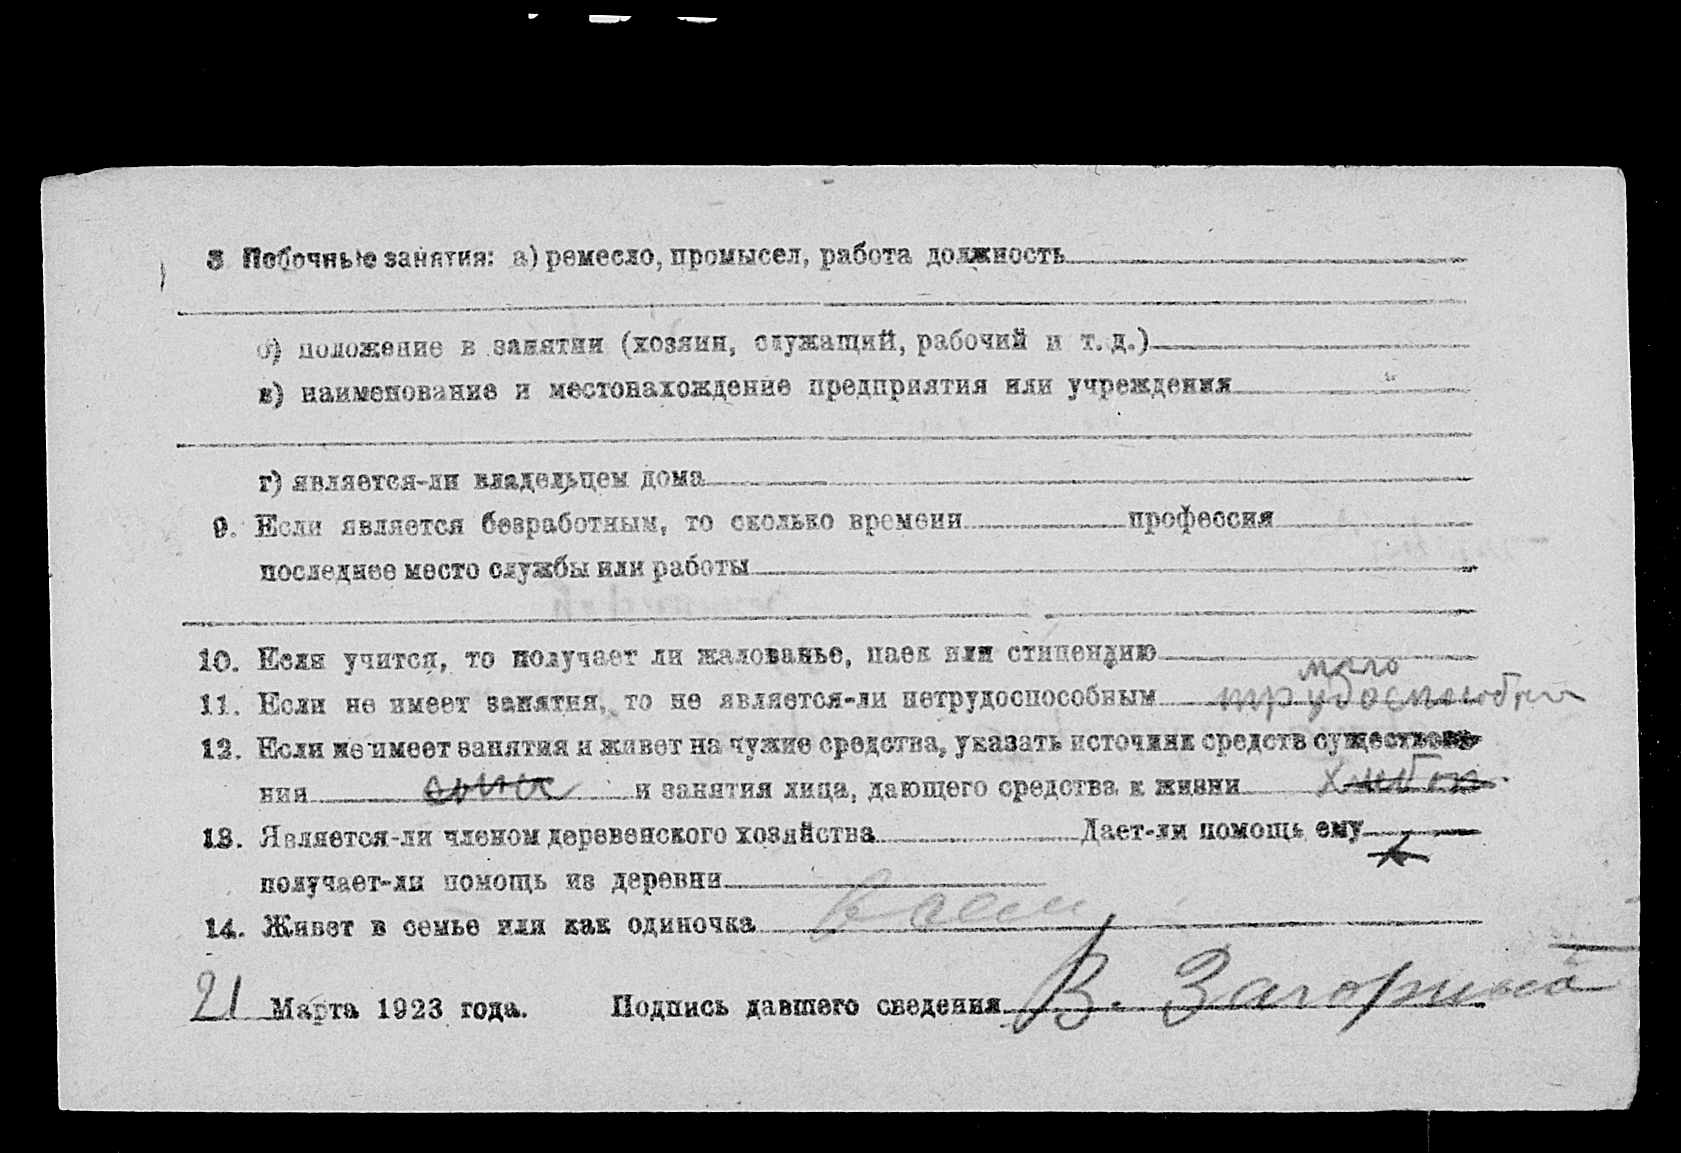 8 Побочные занятия: а) ремесло, промысел, работа должность
б) положение в занятии (хозяин, служащий, рабочий и т. д.)
в) наименование и местонахождение предприятия или учреждения
г) является-ли владельцем дома
9. Если является безработным, то сколько времени профессия
последнее место службы или работы
10. Если учится, то получает ли жалованье, паек или стипендию
мало
11. Если не имеет занятия, то не является-ли нетрудоспособным трудоспособный
12. Если не имеет занятия и живет на чужие средства, указать источник средств существова-
ния сына и занятия лица, дающего средства к жизни
13. Является-ли членом деревенского хозяйства Дает-ли помощь ему
получает-ли помощь из деревни
14. Живет в семье или как одиночка в сем
21 Марта 1923 года. Подпись давшего сведения В.